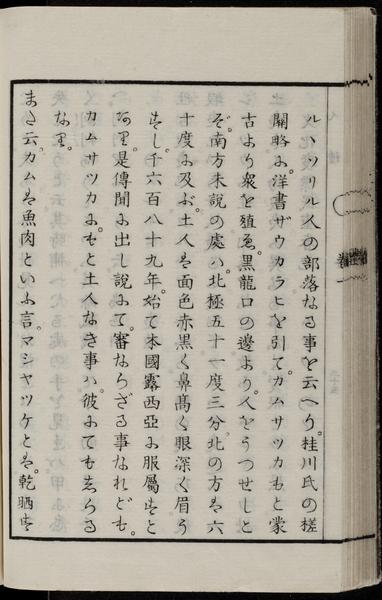 ルハツリル人の部落なる事を云へり。桂川氏の槎
闢略に。洋書ザウカラヒを引て。カムサツカもと蒙
古より衆を殖ゑ。黒龍口の邊より。人をうつせしと
ぞ。南方未說の處ハ。北極五十一度三分。北の方は六
十度に及ぶ。土人は面色赤黒く鼻高く眼深く眉う
すし。千六百八十九年。始て本國露西亞に服屬すと
なり。是傳聞に出し說にて。審ならざる事なれども。
カムサツカにもと土人なき事ハ。彼にてもきらる
なり。
また云。カムは魚肉といふ言。マシヤツケとは。乾晒す